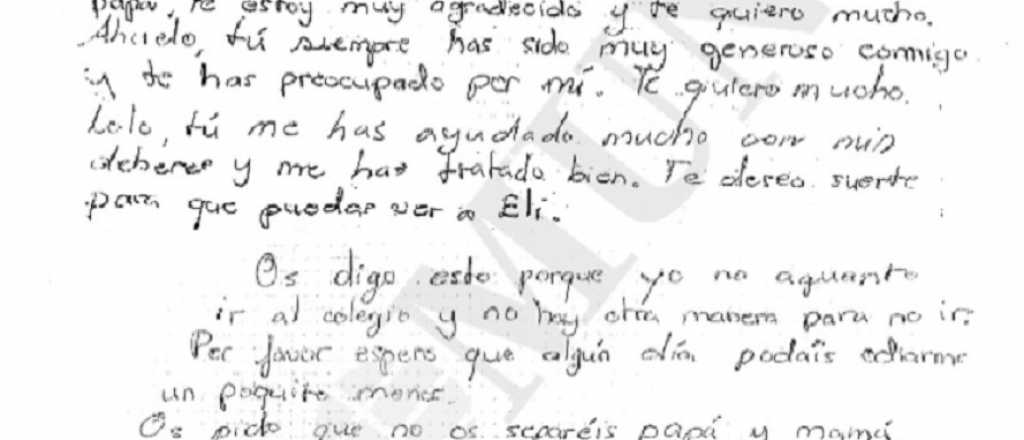 papá, te estoy muy agradecido y te quiero mucho.
Abuelo, tú siempre has sido muy generoso conmigo
y te has preocupado por mí. Te quiero mucho.
Lolo, tú me has ayudado mucho con mis
deberes y me has tratado bien. Te deseo suerte
para que puedas ver a Eli.
Os digo esto porque yo no aguanto
ir al colegio y no hay otra manera para no ir.
Por favor espero que algún día podáis odiarme
un poquito menos.
Os pido que no os separéis papá y mamá